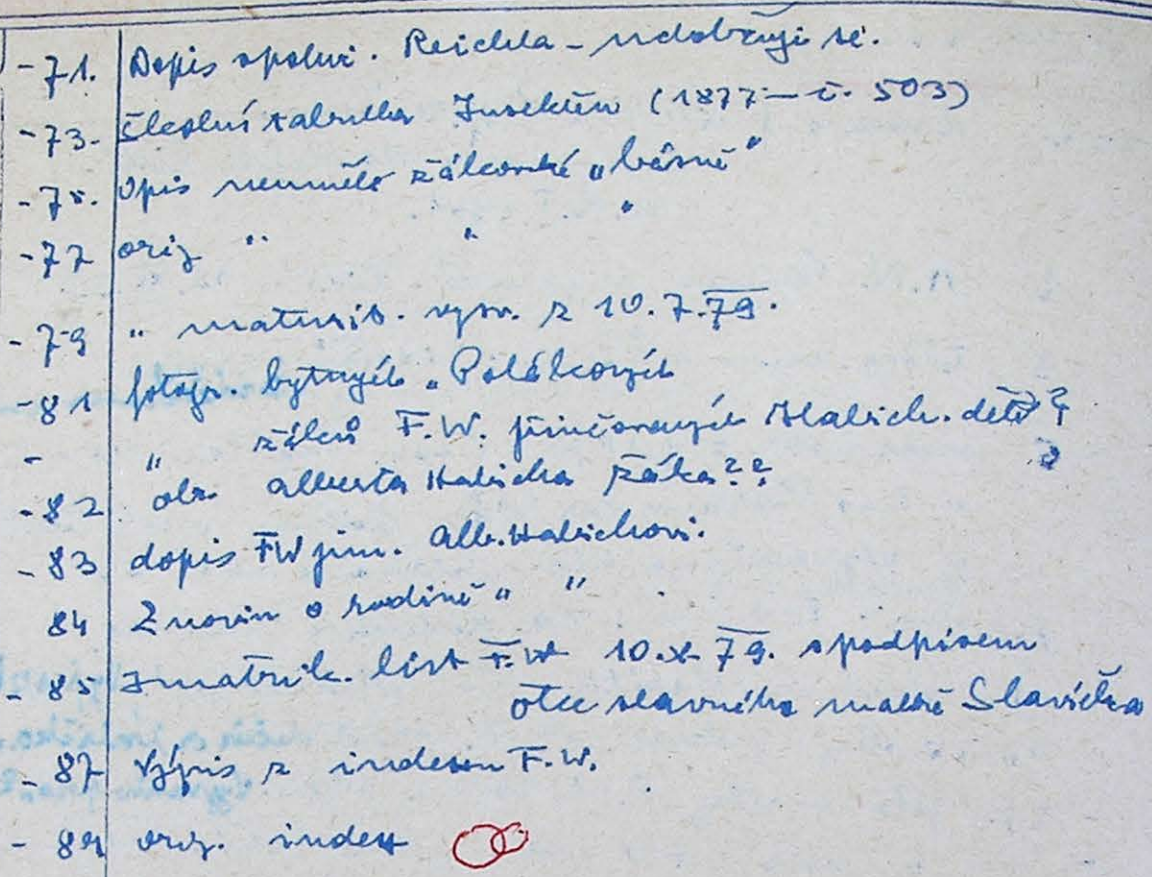 - 71. Dopis spoluž. Reichla - udobřuji se.
- 73. Školní tabulka Insektů (1877 — č. 503)
- 75. Opis neumělé žákovské „básně"
- 77 orig " " "
- 79 " maturit. vysv. z 10.7.79.
- 81 fotogr. bytných „Polákových
- " žáků F.W. Habich. dětí ??
- 82 " obr. Alberta Habicha žáka??
- 83 dopis FW jim. Alb. Habichovi.
84 Z novin o rodině " "
- 85 Imatrik. list F.W. 10.X.79. s podpisem
otce slavného malíře Slavíčka
- 87 Výpis z indexu F.W.
- 89 orig. index